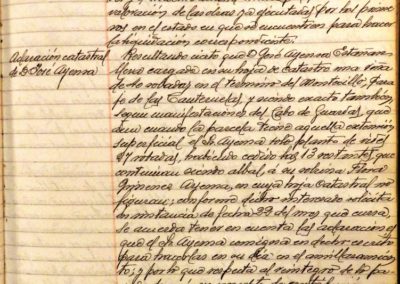 valoración de las obras ya ejecutadas por los
nos en el estado en que se encuentran para hacer
la liquidación correspondiente.
Aclaración catastral
de D. José Ayensa
Resultando cierto que D. José Ayensa
lleva cargado en su hoja de catastro una
de robadas en el término del Montecillo,
je de las Canteras, y siendo exacto también,
según manifestaciones del Cabo de Guardas, que
aun cuando la parcela tiene aquella extensión
superficial el Sr. Ayensa solo planto de viñas
17 robadas, habiendo cedido las 13 restantes, que
continuan siendo albal, á su
Gimenez Ayensa, en cuya hoja catastral no
figuran; conforme dicho interesado solicita
en instancia de fecha 22 del mes que cursa,
se acuerda tener en cuenta las aclaraciones
que el Sr. Ayensa consigna en dicho escrito
para hacerlas en su día en el amillaramien
to; y por lo que respecta al reintegro de lo pa